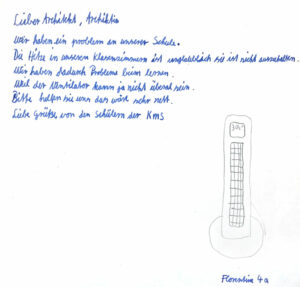 Lieber Architekt, Architektin
wir haben ein problem in unserer Schule.
Die Hitze in unserem Klassenzimmern ist unglaublich sie ist nicht auszuhalten.
Wir haben dadurch Probleme beim lernen.
Weil der Ventilator kann ja nicht überal sein.
Bitte helfen sie uns das wäre sehr nett.
Liebe Grüße von den Schülern der KMS
30°
Florentina 4a